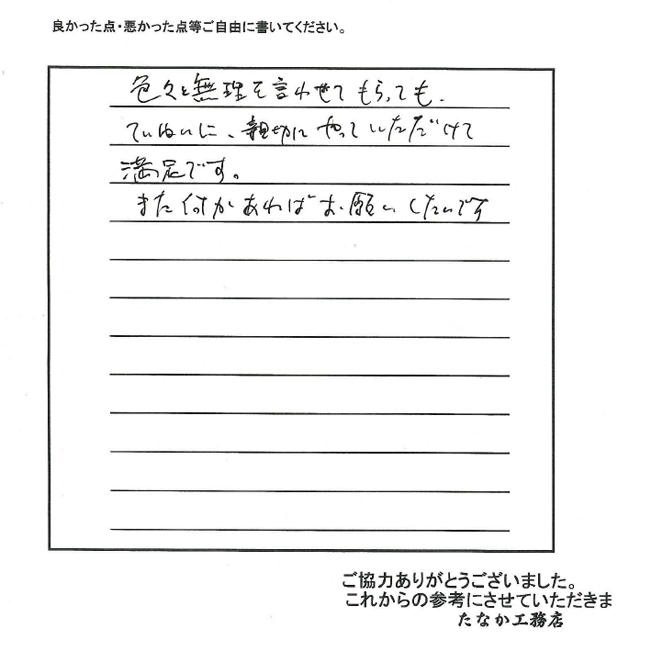 良かった点・悪かった点等ご自由に書いてください。
色々と無理を言わせてもらっても、
ていねいに、親切にやっていただけて
満足です。
また何かあればお願いしたいです
ご協力ありがとうございました。
これからの参考にさせていただきま
たなか工務店